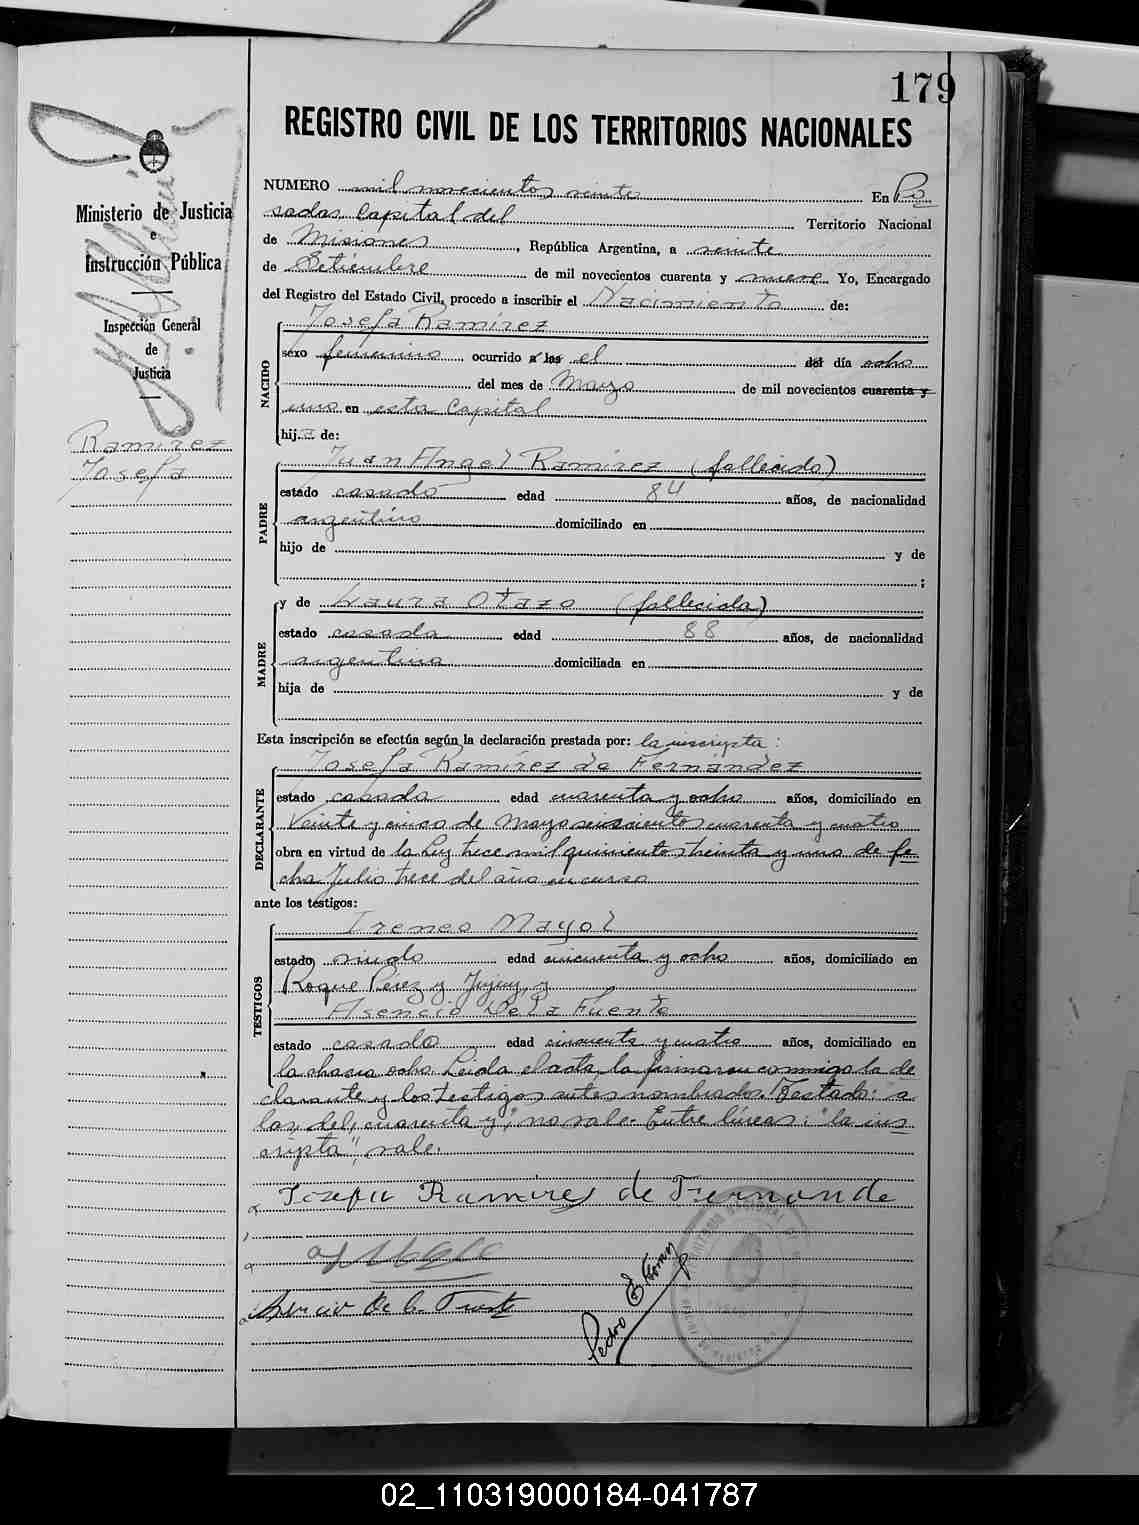 179
REGISTRO CIVIL DE LOS TERRITORIOS NACIONALES
Ministerio de Justicia
e
Instrucción Pública
Inspección General
de
Justicia
Ramírez
Josefa
NUMERO mil novecientos veinte En Po
sadas, Capital del Territorio Nacional
de Misiones, República Argentina, a veinte
de Setiembre de mil novecientos cuarenta y nueve Yo, Encargado
del Registro del Estado Civil, procedo a inscribir el Nacimiento de:
NACIDO
Josefa Ramírez
sexo femenino ocurrido a las el del día ocho
del mes de Marzo de mil novecientos cuarenta y
uno en esta Capital
hija de:
PADRE
Juan Angel Ramírez (fallecido)
estado casado edad 84 años, de nacionalidad
argentino domiciliado en
hijo de y de
;
MADRE
y de Laura Otazo (fallecida)
estado casada edad 88 años, de nacionalidad
argentina domiciliada en
hija de y de
Esta inscripción se efectúa según la declaración prestada por: la inscripta:
DECLARANTE
Josefa Ramírez de Fernández
estado casada edad cuarenta y ocho años, domiciliado en
Veinte y cinco de Mayo seiscientos cuarenta y cuatro
obra en virtud de la Ley trece mil quinientos treinta y uno de fe
cha Julio trece del año en curso
ante los testigos:
TESTIGOS
Ireneo Mayol
estado viudo edad cincuenta y ocho años, domiciliado en
Roque Perez y Jujuy, y
Asencio De la Fuente
estado casado edad cincuenta y cuatro años, domiciliado en
la chacra ocho. Leida el acta, la firmaron conmigo la de
clarante y los testigos antes nombrados. Testado: "a
las, del, cuarenta y", no vale. Entre líneas: "la ins
cripta", vale.
Josefa Ramires de Fernande
Asencio de la Fuente
Pedro
02_110319000184-041787